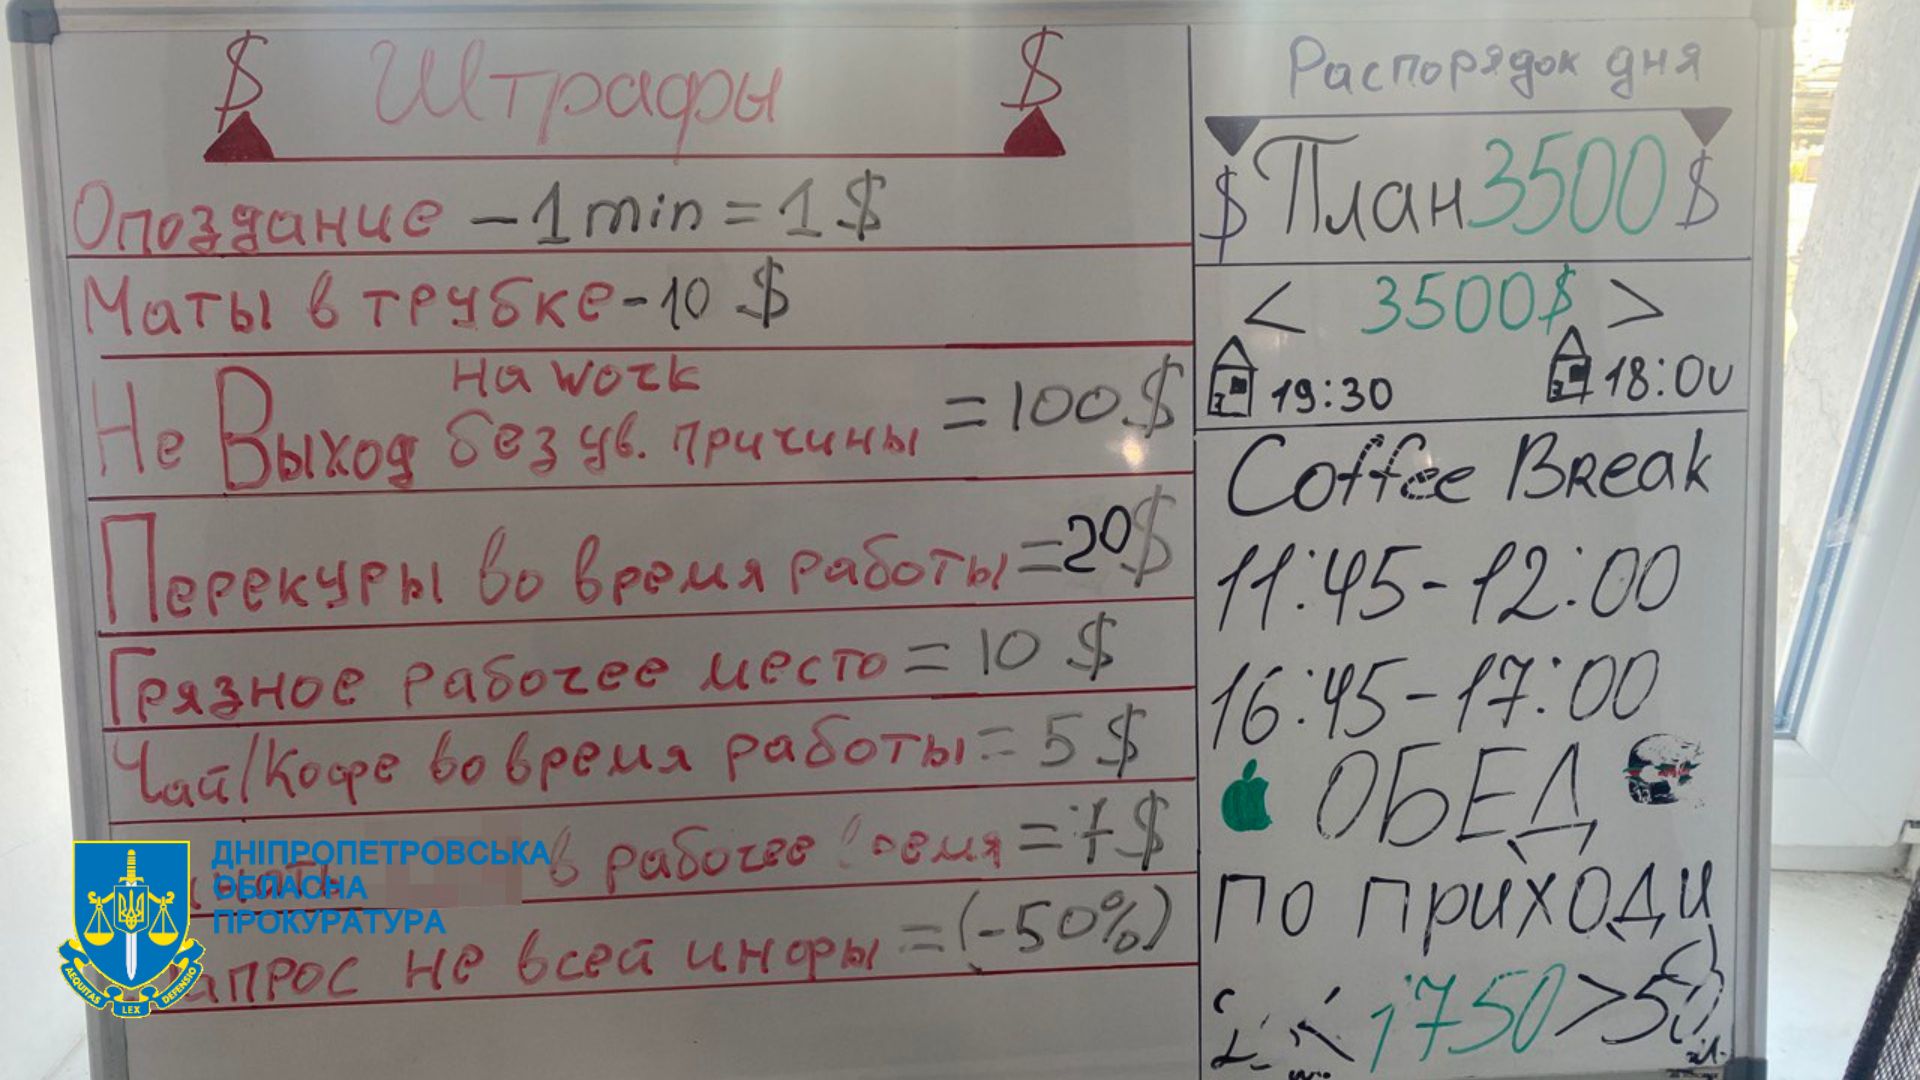 $ Штрафы $
Опоздание – 1 min = 1 $
Маты в трубке - 10 $
на work
Не Выход без ув. причины = 100 $
Перекуры во время работы = 20 $
Грязное рабочее место = 10 $
Чай/Кофе во время работы = 5 $
в рабочее время = 7 $
не всей инфы = (-50%)
Распорядок дня
$ План 3500 $
< 3500$ >
19:30 18:00
Coffee Break
11:45 - 12:00
16:45 - 17:00
ОБЕД
по приходи
< 1750 >
ДНІПРОПЕТРОВСЬКА
ОБЛАСНА
ПРОКУРАТУРА
AEQUITAS LEX DEFENSIO